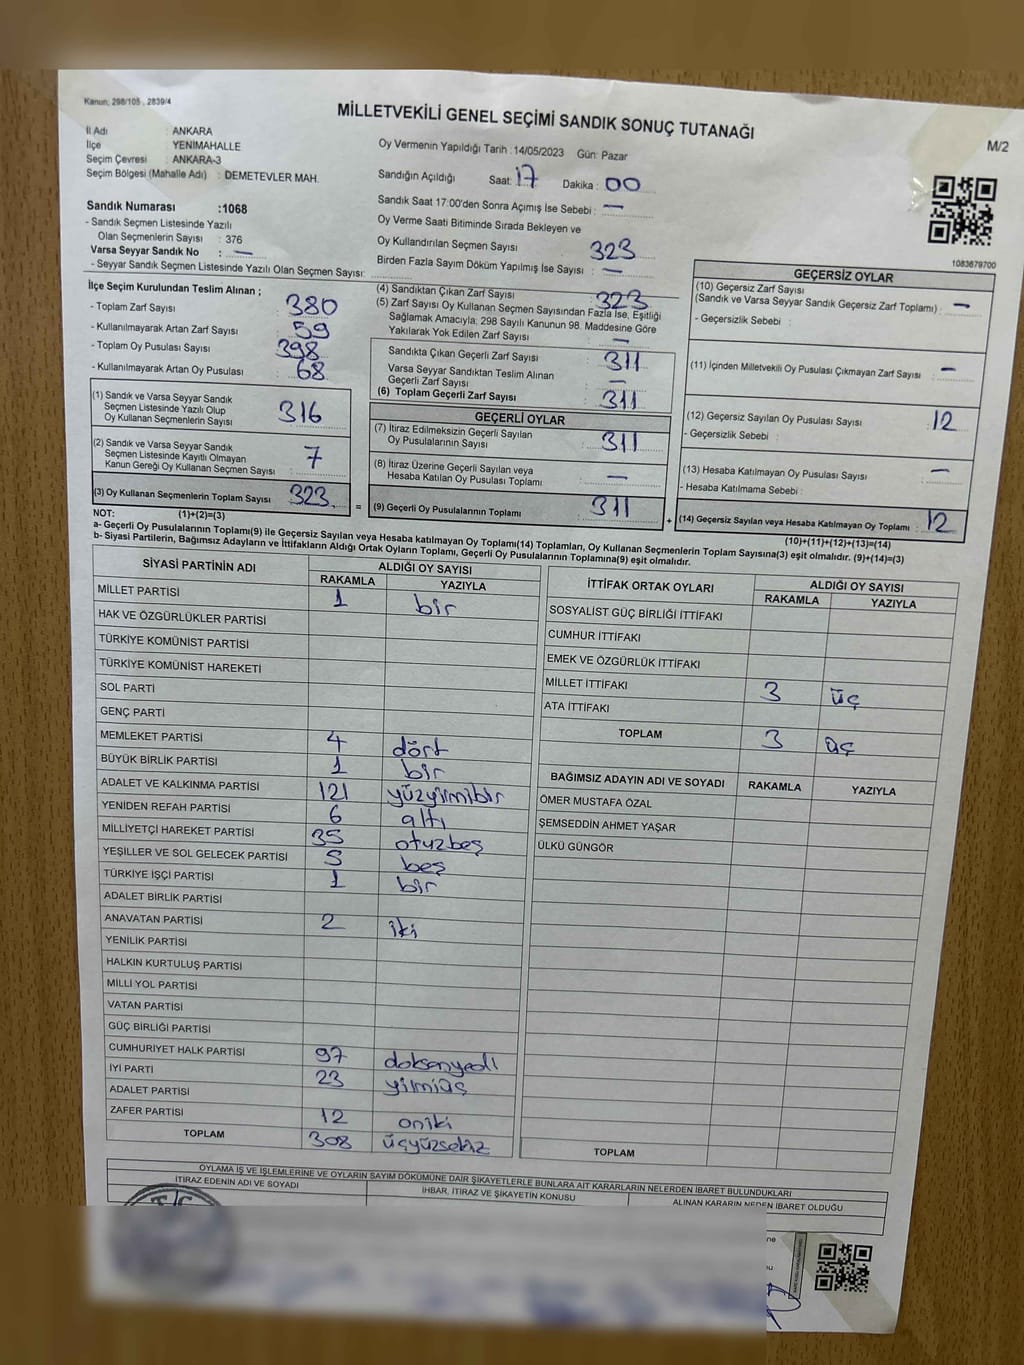 Kanun; 298/105 , 2839/4
MİLLETVEKİLİ GENEL SEÇİMİ SANDIK SONUÇ TUTANAĞI
M/2
İl Adı : ANKARA
İlçe : YENİMAHALLE
Seçim Çevresi : ANKARA-3
Seçim Bölgesi (Mahalle Adı) : DEMETEVLER MAH.
Sandık Numarası :1068
- Sandık Seçmen Listesinde Yazılı
Olan Seçmenlerin Sayısı : 376
Varsa Seyyar Sandık No : —
- Seyyar Sandık Seçmen Listesinde Yazılı Olan Seçmen Sayısı:
Oy Vermenin Yapıldığı Tarih : 14/05/2023 Gün: Pazar
Sandığın Açıldığı Saat: 17 Dakika : 00
Sandık Saat 17:00'den Sonra Açımış İse Sebebi : —
Oy Verme Saati Bitiminde Sırada Bekleyen ve
Oy Kullandırılan Seçmen Sayısı : 323
Birden Fazla Sayım Döküm Yapılmış İse Sayısı : —
1083679700
İlçe Seçim Kurulundan Teslim Alınan ;
- Toplam Zarf Sayısı : 380
- Kullanılmayarak Artan Zarf Sayısı : 59
- Toplam Oy Pusulası Sayısı : 398
- Kullanılmayarak Artan Oy Pusulası : 68
(1) Sandık ve Varsa Seyyar Sandık
Seçmen Listesinde Yazılı Olup
Oy Kullanan Seçmenlerin Sayısı : 316
(2) Sandık ve Varsa Seyyar Sandık
Seçmen Listesinde Kayıtlı Olmayan
Kanun Gereği Oy Kullanan Seçmen Sayısı : 7
(3) Oy Kullanan Seçmenlerin Toplam Sayısı : 323
(4) Sandıktan Çıkan Zarf Sayısı : 323
(5) Zarf Sayısı Oy Kullanan Seçmen Sayısından Fazla İse, Eşitliği
Sağlamak Amacıyla, 298 Sayılı Kanunun 98. Maddesine Göre
Yakılarak Yok Edilen Zarf Sayısı : —
Sandıkta Çıkan Geçerli Zarf Sayısı : 311
Varsa Seyyar Sandıktan Teslim Alınan
Geçerli Zarf Sayısı : —
(6) Toplam Geçerli Zarf Sayısı : 311
GEÇERLİ OYLAR
(7) İtiraz Edilmeksizin Geçerli Sayılan
Oy Pusulalarının Sayısı : 311
(8) İtiraz Üzerine Geçerli Sayılan veya
Hesaba Katılan Oy Pusulası Toplamı : —
= (9) Geçerli Oy Pusulalarının Toplamı : 311
GEÇERSİZ OYLAR
(10) Geçersiz Zarf Sayısı
(Sandık ve Varsa Seyyar Sandık Geçersiz Zarf Toplamı) : —
- Geçersizlik Sebebi :
(11) İçinden Milletvekili Oy Pusulası Çıkmayan Zarf Sayısı : —
(12) Geçersiz Sayılan Oy Pusulası Sayısı : 12
- Geçersizlik Sebebi :
(13) Hesaba Katılmayan Oy Pusulası Sayısı : —
- Hesaba Katılmama Sebebi :
+ (14) Geçersiz Sayılan veya Hesaba Katılmayan Oy Toplamı : 12
NOT: (1)+(2)=(3)
(10)+(11)+(12)+(13)=(14)
a- Geçerli Oy Pusulalarının Toplamı(9) ile Geçersiz Sayılan veya Hesaba Katılmayan Oy Toplamı(14) Toplamları, Oy Kullanan Seçmenlerin Toplam Sayısına(3) eşit olmalıdır. (9)+(14)=(3)
b- Siyasi Partilerin, Bağımsız Adayların ve İttifakların Aldığı Ortak Oyların Toplamı, Geçerli Oy Pusulalarının Toplamına(9) eşit olmalıdır.
SİYASİ PARTİNİN ADI ALDIĞI OY SAYISI
RAKAMLA YAZIYLA
MİLLET PARTİSİ 1 bir
HAK VE ÖZGÜRLÜKLER PARTİSİ
TÜRKİYE KOMÜNİST PARTİSİ
TÜRKİYE KOMÜNİST HAREKETİ
SOL PARTİ
GENÇ PARTİ
MEMLEKET PARTİSİ 4 dört
BÜYÜK BİRLİK PARTİSİ 1 bir
ADALET VE KALKINMA PARTİSİ 121 yüzyirmibir
YENİDEN REFAH PARTİSİ 6 altı
MİLLİYETÇİ HAREKET PARTİSİ 35 otuzbeş
YEŞİLLER VE SOL GELECEK PARTİSİ 5 beş
TÜRKİYE İŞÇİ PARTİSİ 1 bir
ADALET BİRLİK PARTİSİ
ANAVATAN PARTİSİ 2 iki
YENİLİK PARTİSİ
HALKIN KURTULUŞ PARTİSİ
MİLLİ YOL PARTİSİ
VATAN PARTİSİ
GÜÇ BİRLİĞİ PARTİSİ
CUMHURİYET HALK PARTİSİ 97 doksanyedi
İYİ PARTİ 23 yirmiüç
ADALET PARTİSİ
ZAFER PARTİSİ 12 oniki
TOPLAM 308 üçyüzsekiz
İTTİFAK ORTAK OYLARI ALDIĞI OY SAYISI
RAKAMLA YAZIYLA
SOSYALİST GÜÇ BİRLİĞİ İTTİFAKI
CUMHUR İTTİFAKI
EMEK VE ÖZGÜRLÜK İTTİFAKI
MİLLET İTTİFAKI 3 üç
ATA İTTİFAKI
TOPLAM 3 üç
BAĞIMSIZ ADAYIN ADI VE SOYADI RAKAMLA YAZIYLA
ÖMER MUSTAFA ÖZAL
ŞEMSEDDİN AHMET YAŞAR
ÜLKÜ GÜNGÖR
TOPLAM
OYLAMA İŞ VE İŞLEMLERİNE VE OYLARIN SAYIM DÖKÜMÜNE DAİR ŞİKAYETLERLE BUNLARA AİT KARARLARIN NELERDEN İBARET BULUNDUKLARI
İTİRAZ EDENİN ADI VE SOYADI İHBAR, İTİRAZ VE ŞİKAYETİN KONUSU ALINAN KARARIN NEDEN İBARET OLDUĞU
T.C.